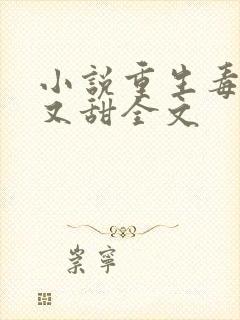 小説重生毒
又甜全文
崇寧